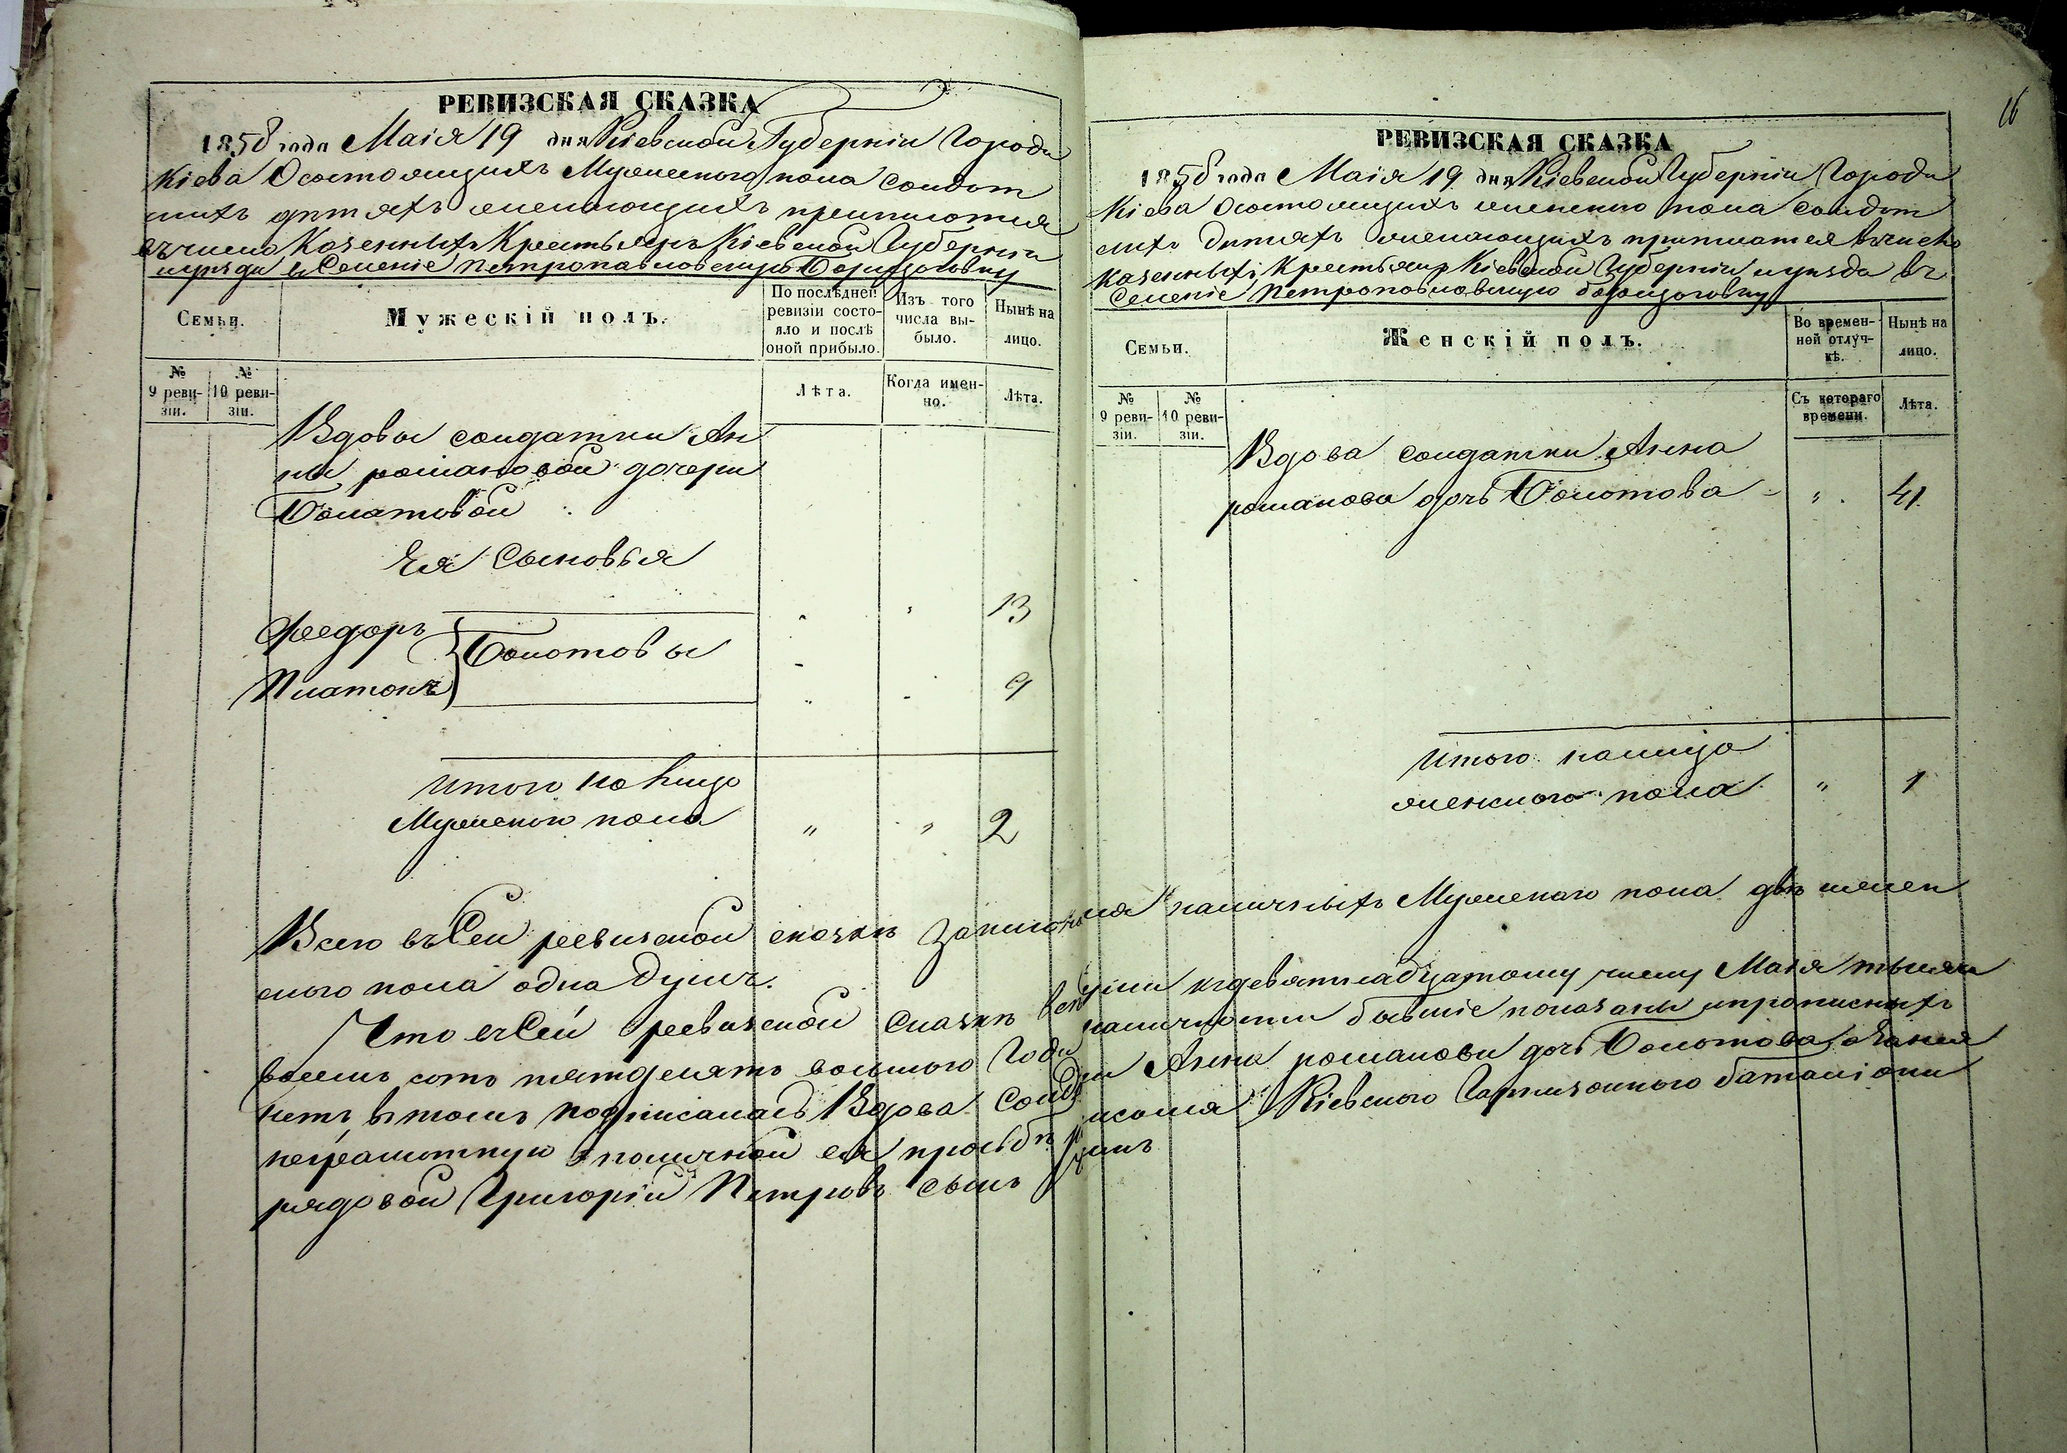 РЕВИЗСКАЯ СКАЗКА
1858 года Маія 19 дня Кіевской Губерніи Города
Кіева О состоящихъ Мужеского пола солдат
скихъ дѣтяхъ желающихъ приписатся
въ число Казенныхъ Крестьянъ Кіевской Губерніи
и уезда въ Селеніе Петропавловскую Борщаговку
Семьи.
Мужескій полъ.
По послѣдней ревизіи состояло и послѣ оной прибыло.
Изъ того числа выбыло.
Нынѣ на лицо.
№ 9 ревизіи.
№ 10 ревизіи.
Лѣта.
Когда именно.
Лѣта.
Вдовы солдатки Ан
ны романовой дочери
Болатовой
Ея Сыновья
Феодоръ 13
Болотовы
Платонъ 9
Итого на лицо
Мужеского пола " " 2
РЕВИЗСКАЯ СКАЗКА
16
1858 года Маія 19 дня Кіевской Губерніи Города
Кіева О состоящихъ женского пола солдат
скихъ дитяхъ желающихъ приписатся въ число
Казенныхъ Крестьянъ Кіевской Губерніи и уезда въ
Селеніе Петропавловскую борщаговку
Семьи.
Женскій полъ.
Во временной отлучкѣ.
Нынѣ на лицо.
№ 9 ревизіи.
№ 10 ревизіи.
Съ котораго времени.
Лѣта.
Вдова солдатки Анна
романова дочь Болотова " 41
Итого налицо
женского пола " 1
Всего въ Сей ревизской сказкѣ Записана наличныхъ Мужескаго пола двѣ женск
ого пола одна душъ.
Что въ Сей ревизской Сказкѣ всѣ души к девятнадцатому числу Маія тысяча
восемь сотъ пятдесятъ восьмого Года наличности бывшіе показаны и прописныхъ
нетъ, в томъ подписалась Вдова Солдатки Анна романова дочь Болотова, а за нея
неграмотную по личной ея просьбѣ росписался Кіевского Гарнизонного баталіона
рядовой Григорій Петровъ сынъ